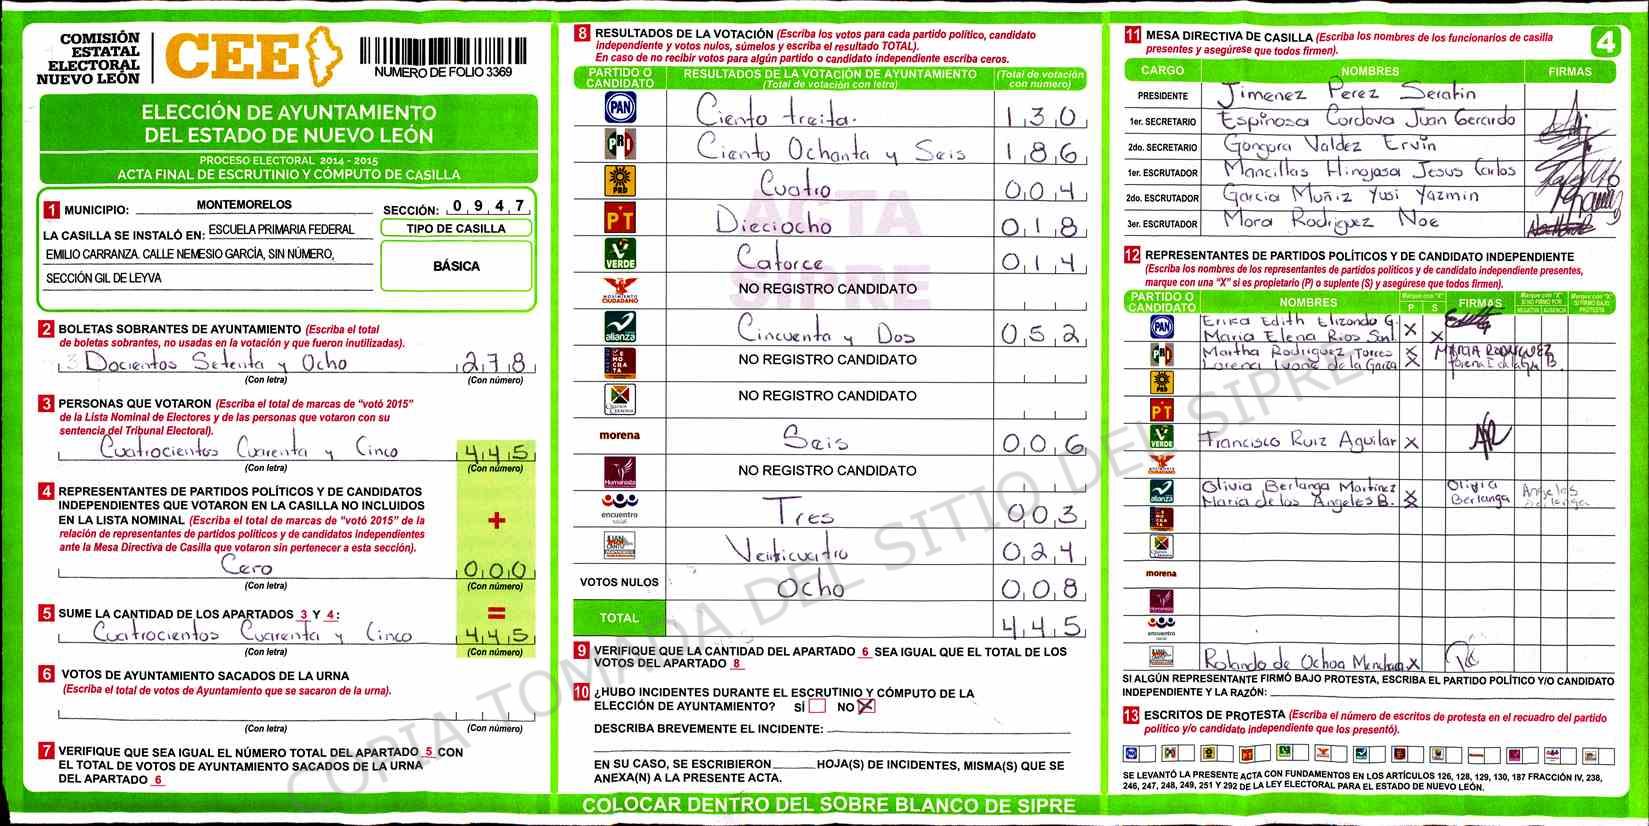 COMISIÓN
ESTATAL
ELECTORAL
NUEVO LEÓN
CEE
NUMERO DE FOLIO 3369
ELECCIÓN DE AYUNTAMIENTO
DEL ESTADO DE NUEVO LEÓN
PROCESO ELECTORAL 2014 - 2015
ACTA FINAL DE ESCRUTINIO Y CÓMPUTO DE CASILLA
1 MUNICIPIO: MONTEMORELOS SECCIÓN: 0 9 4 7
LA CASILLA SE INSTALÓ EN: ESCUELA PRIMARIA FEDERAL
EMILIO CARRANZA. CALLE NEMESIO GARCÍA, SIN NÚMERO,
SECCIÓN GIL DE LEYVA
TIPO DE CASILLA
BÁSICA
2 BOLETAS SOBRANTES DE AYUNTAMIENTO (Escriba el total
de boletas sobrantes, no usadas en la votación y que fueron inutilizadas).
Docientos Setenta y Ocho 2 7 8
(Con letra) (Con número)
3 PERSONAS QUE VOTARON (Escriba el total de marcas de “votó 2015”
de la Lista Nominal de Electores y de las personas que votaron con su
sentencia del Tribunal Electoral).
Cuatrocientos Cuarenta y Cinco 4 4 5
(Con letra) (Con número)
4 REPRESENTANTES DE PARTIDOS POLÍTICOS Y DE CANDIDATOS
INDEPENDIENTES QUE VOTARON EN LA CASILLA NO INCLUIDOS
EN LA LISTA NOMINAL (Escriba el total de marcas de “votó 2015” de la
relación de representantes de partidos políticos y de candidatos independientes
ante la Mesa Directiva de Casilla que votaron sin pertenecer a esta sección).
+
Cero 0 0 0
(Con letra) (Con número)
5 SUME LA CANTIDAD DE LOS APARTADOS 3 Y 4: =
Cuatrocientos Cuarenta y Cinco 4 4 5
(Con letra) (Con número)
6 VOTOS DE AYUNTAMIENTO SACADOS DE LA URNA
(Escriba el total de votos de Ayuntamiento que se sacaron de la urna).
(Con letra) (Con número)
7 VERIFIQUE QUE SEA IGUAL EL NÚMERO TOTAL DEL APARTADO 5 CON
EL TOTAL DE VOTOS DE AYUNTAMIENTO SACADOS DE LA URNA
DEL APARTADO 6
8 RESULTADOS DE LA VOTACIÓN (Escriba los votos para cada partido político, candidato
independiente y votos nulos, súmelos y escriba el resultado TOTAL).
En caso de no recibir votos para algún partido o candidato independiente escriba ceros.
PARTIDO O CANDIDATO RESULTADOS DE LA VOTACIÓN DE AYUNTAMIENTO (Total de votación con letra) (Total de votación con número)
PAN Ciento treita. 1 3 0
PRD Ciento Ochenta y Seis 1 8 6
PRD Cuatro 0 0 4
PT Dieciocho 0 1 8
VERDE Catorce 0 1 4
MOVIMIENTO CIUDADANO NO REGISTRO CANDIDATO
alianza Cincuenta y Dos 0 5 2
DEMOCRATA NO REGISTRO CANDIDATO
NO REGISTRO CANDIDATO
morena Seis 0 0 6
Humanista NO REGISTRO CANDIDATO
encuentro social Tres 0 0 3
Venticuatro 0 2 4
VOTOS NULOS Ocho 0 0 8
TOTAL 4 4 5
ACTA
SIPRE
9 VERIFIQUE QUE LA CANTIDAD DEL APARTADO 6 SEA IGUAL QUE EL TOTAL DE LOS
VOTOS DEL APARTADO 8
10 ¿HUBO INCIDENTES DURANTE EL ESCRUTINIO Y CÓMPUTO DE LA
ELECCIÓN DE AYUNTAMIENTO? SÍ NO X
DESCRIBA BREVEMENTE EL INCIDENTE:
EN SU CASO, SE ESCRIBIERON HOJA(S) DE INCIDENTES, MISMA(S) QUE SE
ANEXA(N) A LA PRESENTE ACTA.
COLOCAR DENTRO DEL SOBRE BLANCO DE SIPRE
11 MESA DIRECTIVA DE CASILLA (Escriba los nombres de los funcionarios de casilla
presentes y asegúrese que todos firmen).
4
CARGO NOMBRES FIRMAS
PRESIDENTE Jimenez Perez Serafin
1er. SECRETARIO Espinosa Cordova Juan Gerardo
2do. SECRETARIO Gongora Valdez Ervin
1er. ESCRUTADOR Mancillas Hinojosa Jesus Carlos
2do. ESCRUTADOR Garcia Muñiz Yusi Yazmin
3er. ESCRUTADOR Mora Rodriguez Noe
12 REPRESENTANTES DE PARTIDOS POLÍTICOS Y DE CANDIDATO INDEPENDIENTE
(Escriba los nombres de los representantes de partidos políticos y de candidato independiente presentes,
marque con una “X” si es propietario (P) o suplente (S) y asegúrese que todos firmen).
PARTIDO O CANDIDATO NOMBRES Marque con "X" P S FIRMAS
PAN Erika Edith Elizondo G. X
Maria Elena Rios X
Martha Rodriguez Torres X MARTHA RODRIGUEZ
Lorena Ivone de la Garza X
PRD
PT
VERDE Francisco Ruiz Aguilar X
alianza Olivia Berlanga Martinez X Olivia Berlanga
Maria de los Angeles B. X Angeles
morena
Humanista
encuentro social
Rolando de Ochoa X
SI ALGÚN REPRESENTANTE FIRMÓ BAJO PROTESTA, ESCRIBA EL PARTIDO POLÍTICO Y/O CANDIDATO
INDEPENDIENTE Y LA RAZÓN:
13 ESCRITOS DE PROTESTA (Escriba el número de escritos de protesta en el recuadro del partido
político y/o candidato independiente que los presentó).
SE LEVANTÓ LA PRESENTE ACTA CON FUNDAMENTOS EN LOS ARTÍCULOS 126, 128, 129, 130, 187 FRACCIÓN IV, 238,
246, 247, 248, 249, 251 Y 292 DE LA LEY ELECTORAL PARA EL ESTADO DE NUEVO LEÓN.
COPIA TOMADA DEL SITIO DEL SIPRE